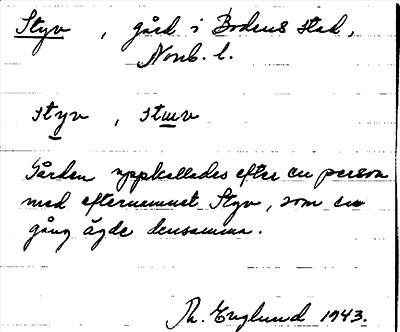 Styv, gård i Bodens stad,
Norrb. l.
styv, stuv
Gården uppkallades efter en person
med efternamnet Styv, som en
gång ägde densamma.
Th. Englund 1943.